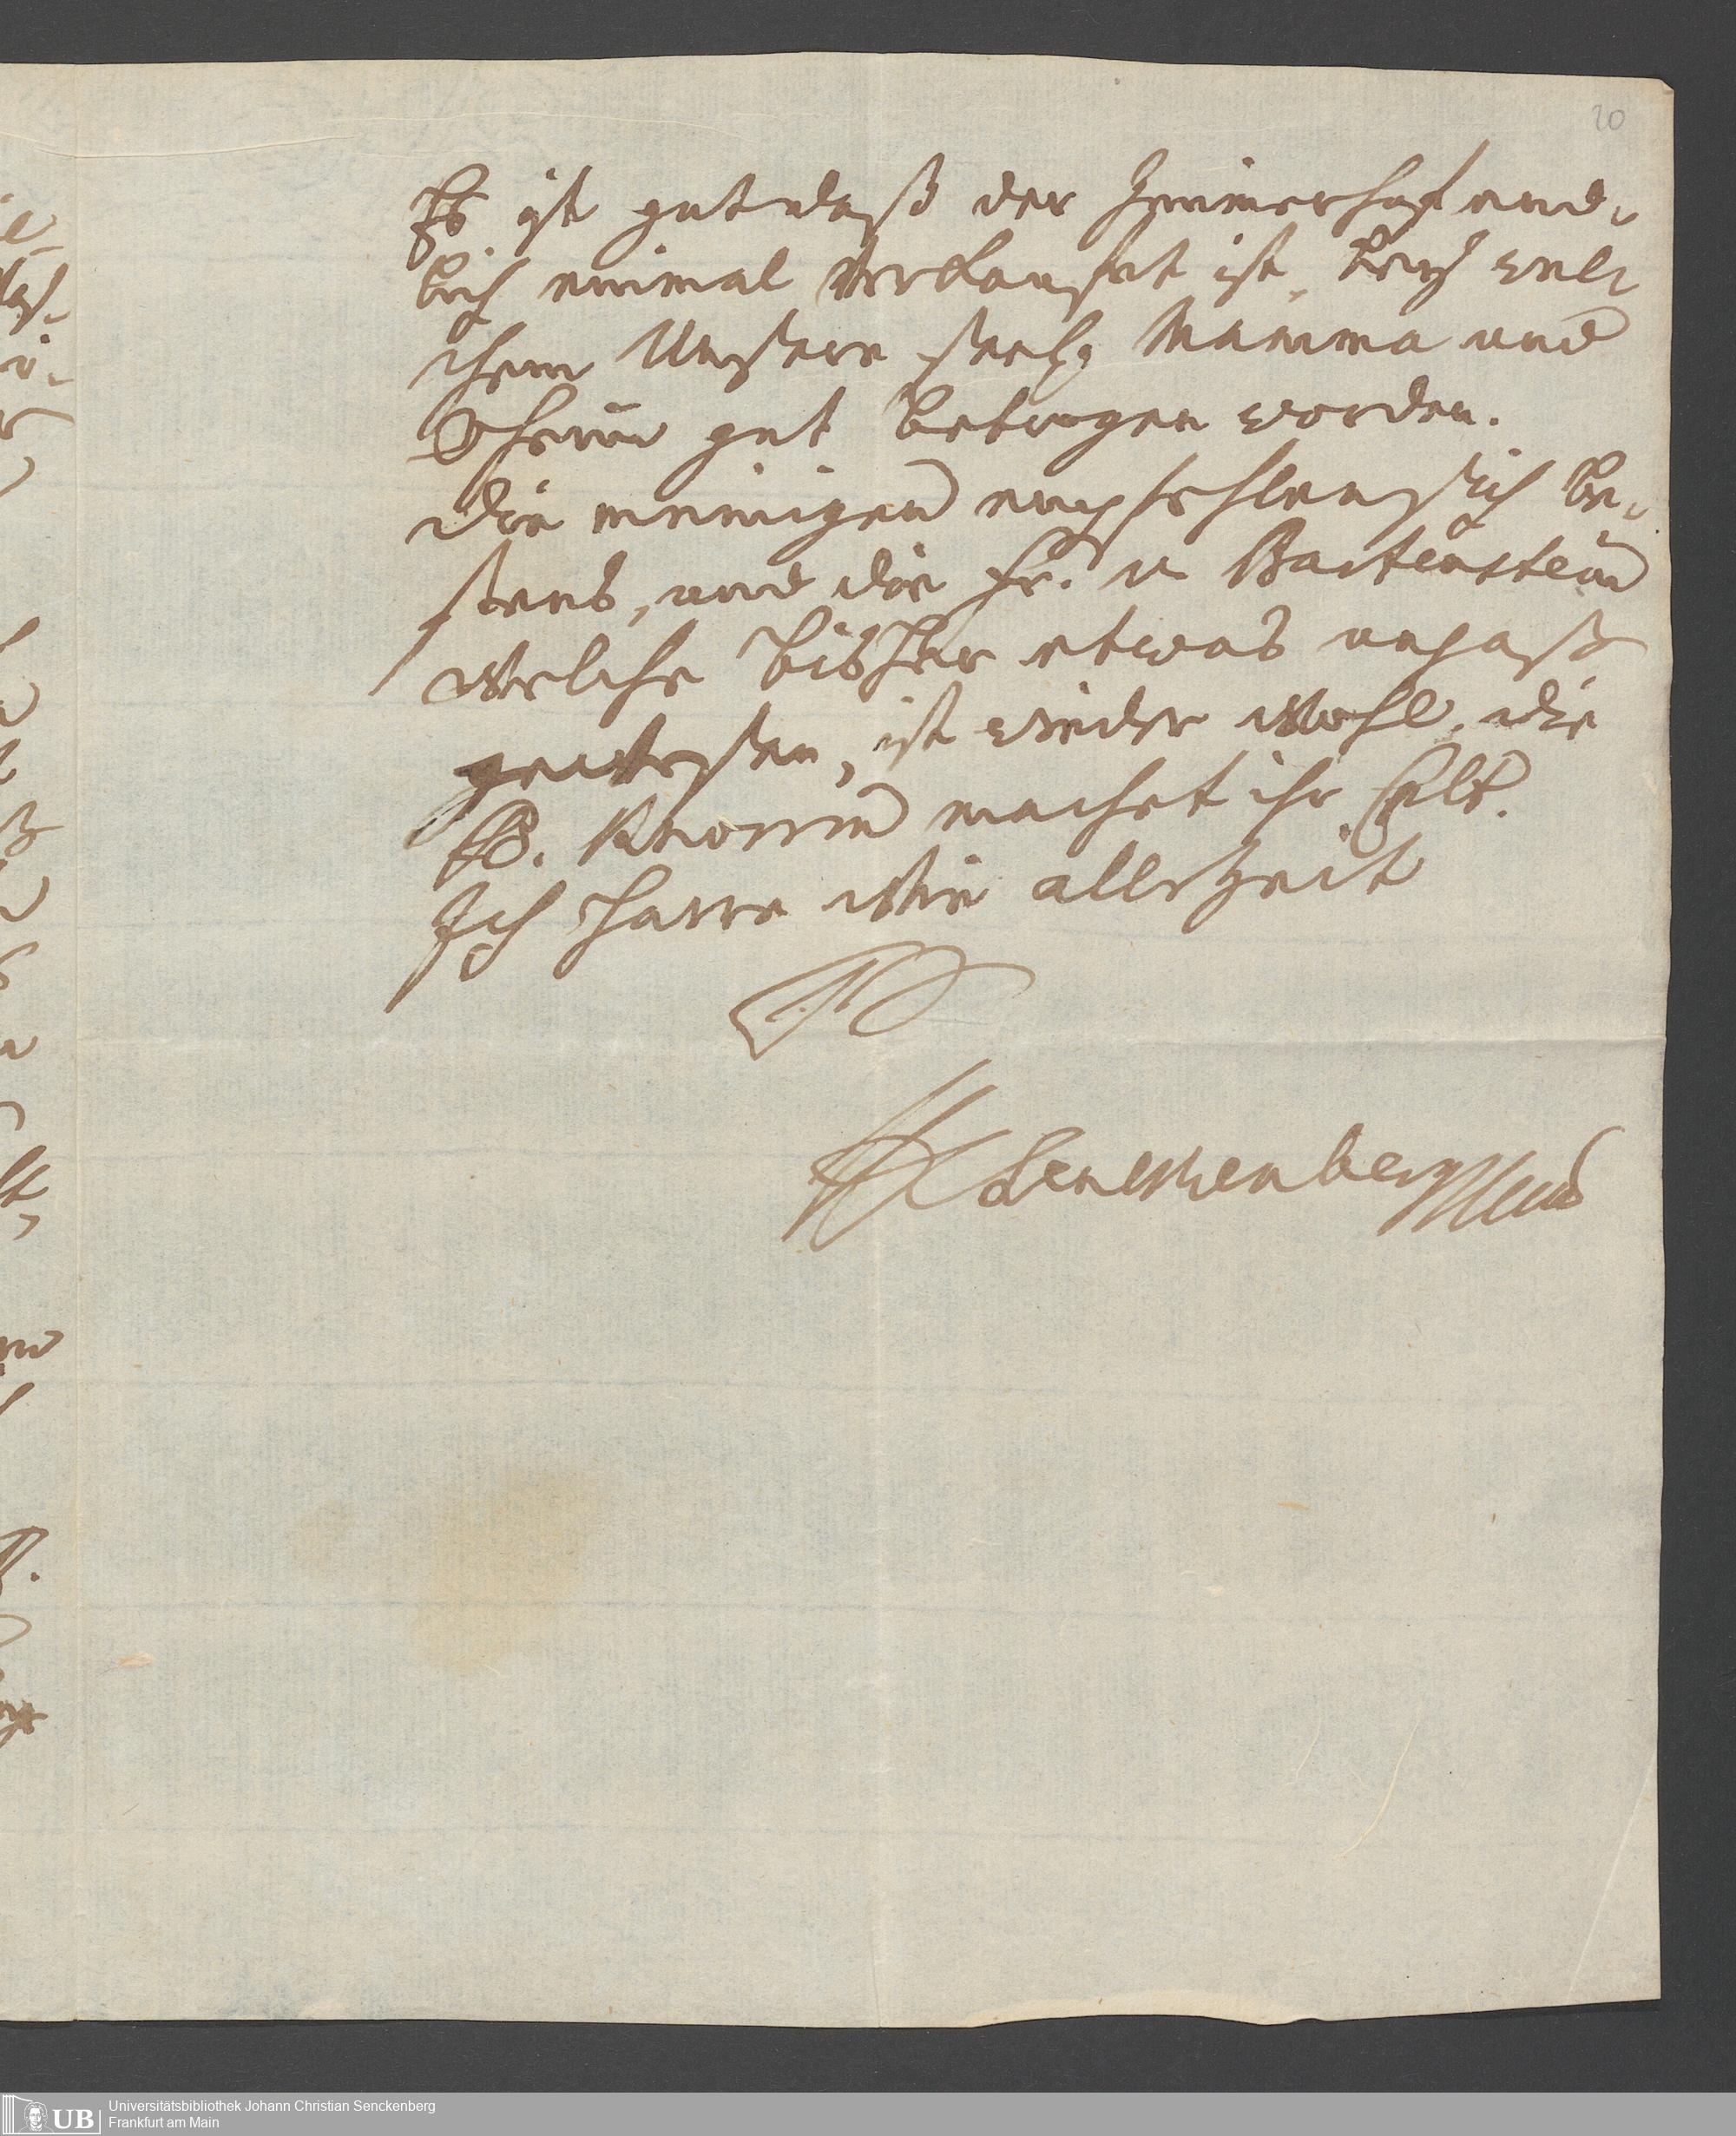 20
Es ist gut daß der Himmerhof end-
lich einmal verkaufet ist, bey wel-
chem Unsere seel. Mamma und
gut betrogen worden.
Die meinigen empfehlen sich be-
stens, und die Fr. v Bartenstein
welche bisher etwas unpaß
gewesen, ist wieder wohl, die
Fr. Knorrin machet ihr Cplt.
Ich harre wie allezeit
Senckenberg
Universitätsbibliothek Johann Christian Senckenberg
Frankfurt am Main
UB